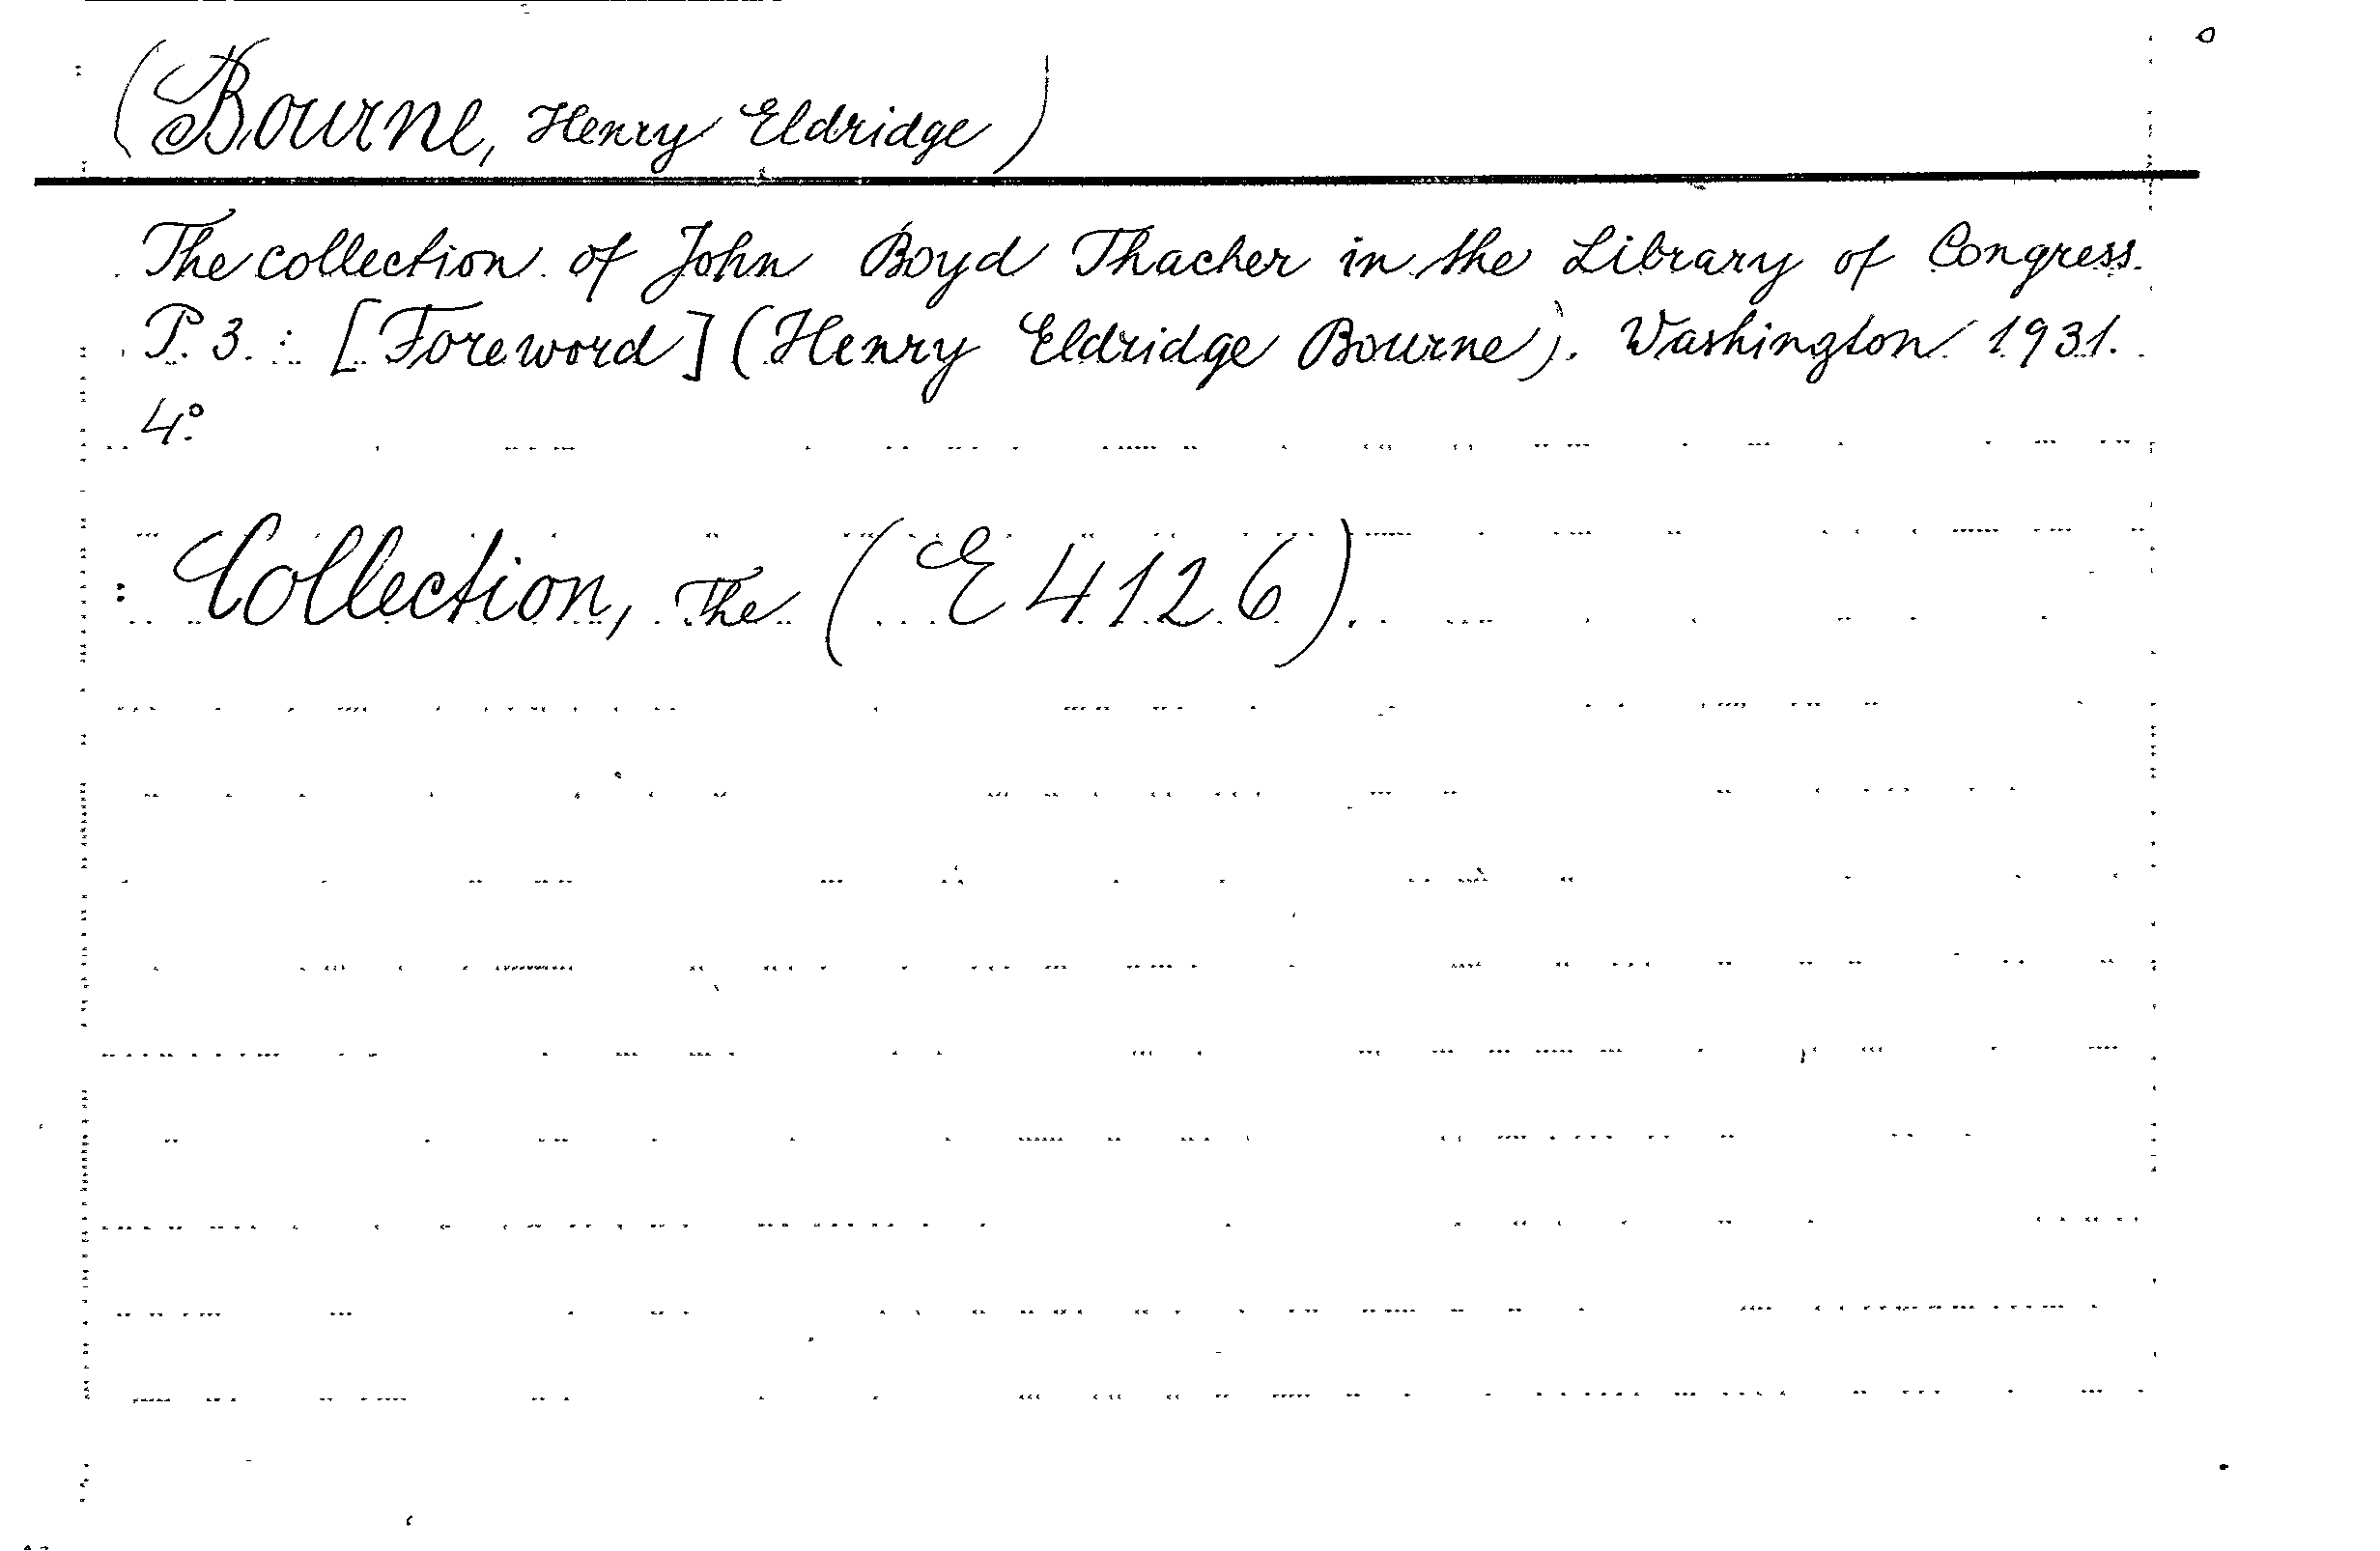 (Bourne, Henry Eldridge)
The collection of John Boyd Thacher in the Library of Congress.
P. 3.: [Foreword] (Henry Eldridge Bourne). Washington 1931.
4°.
: Collection, The (E 4126).